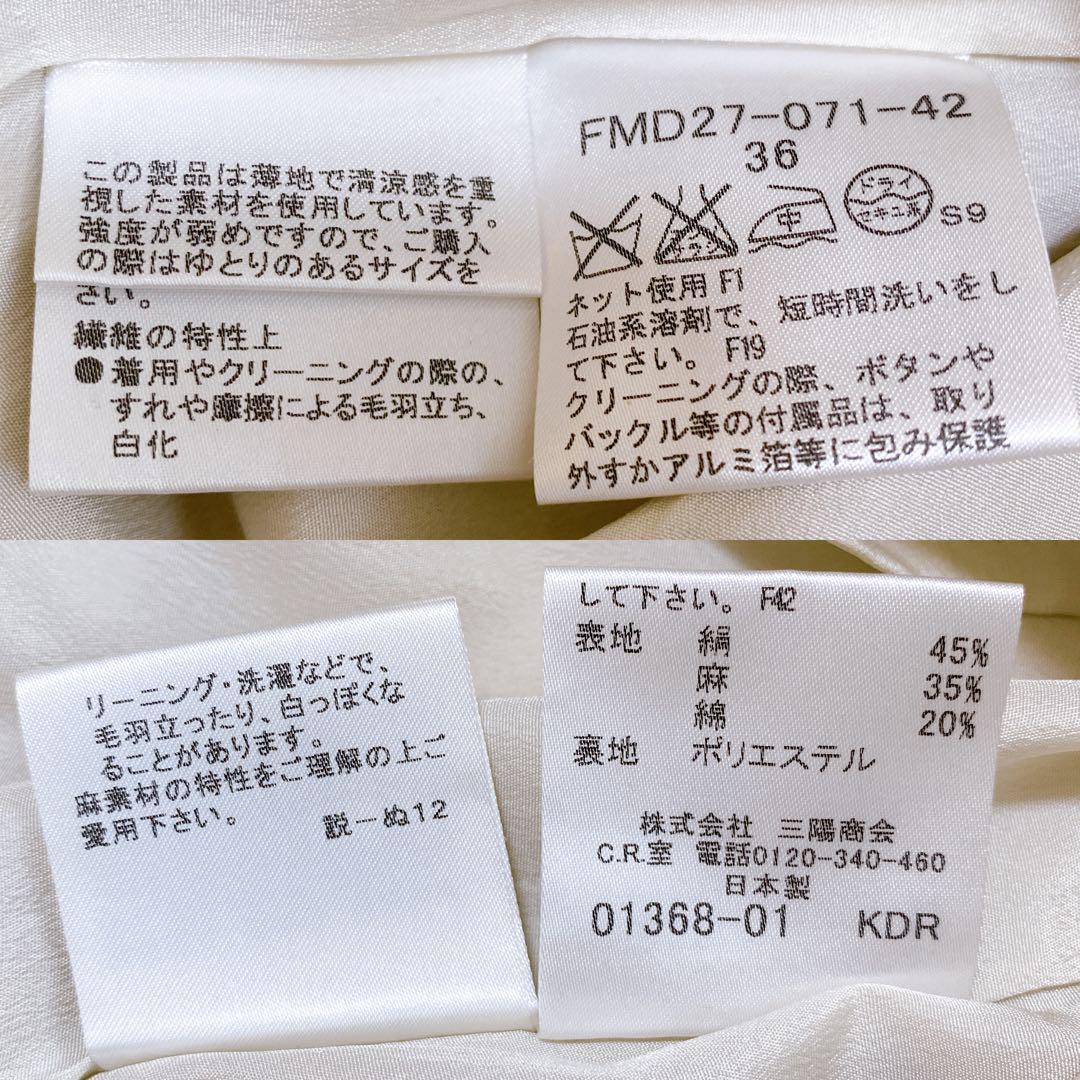 この製品は薄地で清涼感を重
視した素材を使用しています。
強度が弱めですので、ご購入
の際はゆとりのあるサイズを
さい。
繊維の特性上
●着用やクリーニングの際の、
すれや摩擦による毛羽立ち、
白化
FMD27-071-42
36
エンソ
サラシ
中
ドライ
セキユ系
S9
ネット使用 F1
石油系溶剤で、短時間洗いをし
て下さい。 F19
クリーニングの際、ボタンや
バックル等の付属品は、取り
外すかアルミ箔等に包み保護
リーニング・洗濯などで、
毛羽立ったり、白っぽくな
ることがあります。
麻素材の特性をご理解の上ご
愛用下さい。 説-ぬ12
して下さい。 F42
表地 絹 45%
麻 35%
綿 20%
裏地 ポリエステル
株式会社 三陽商会
C.R.室 電話0120-340-460
日本製
01368-01 KDR